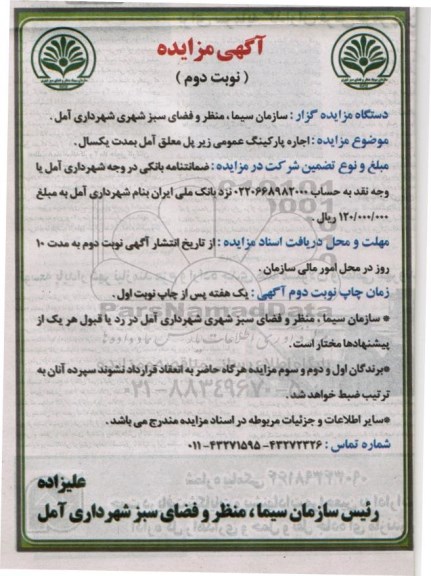 آگهی مزایده
( نوبت دوم )
دستگاه مزایده گزار : سازمان سیما ، منظر و فضای سبز شهری شهرداری آمل .
موضوع مزایده : اجاره پارکینگ عمومی زیر پل معلق آمل بمدت یکسال .
مبلغ و نوع تضمین شرکت در مزایده : ضمانتنامه بانکی در وجه شهرداری آمل یا
وجه نقد به حساب ۰۲۲۰۶۶۸۹۸۲۰۰۰ نزد بانک ملی ایران بنام شهرداری آمل به مبلغ
۱۲۰/۰۰۰/۰۰۰ ریال .
مهلت و محل دریافت اسناد مزایده : از تاریخ انتشار آگهی نوبت دوم به مدت ۱۰
روز در محل امور مالی سازمان .
زمان چاپ نوبت دوم آگهی : یک هفته پس از چاپ نوبت اول .
* سازمان سیما ، منظر و فضای سبز شهری شهرداری آمل در رد یا قبول هر یک از
پیشنهادها مختار است .
*برندگان اول و دوم و سوم مزایده هرگاه حاضر به انعقاد قرارداد نشوند سپرده آنان به
ترتیب ضبط خواهد شد .
*سایر اطلاعات و جزئیات مربوطه در اسناد مزایده مندرج می باشد .
شماره تماس : ۴۳۲۷۲۳۲۶ - ۴۳۲۷۱۵۹۵-۰۱۱
علیزاده
رئیس سازمان سیما ، منظر و فضای سبز شهرداری آمل
ParsNamadData